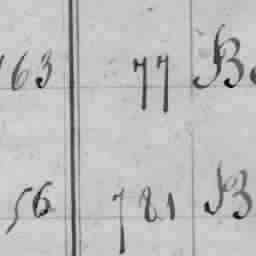 163 77 B
56 781 B